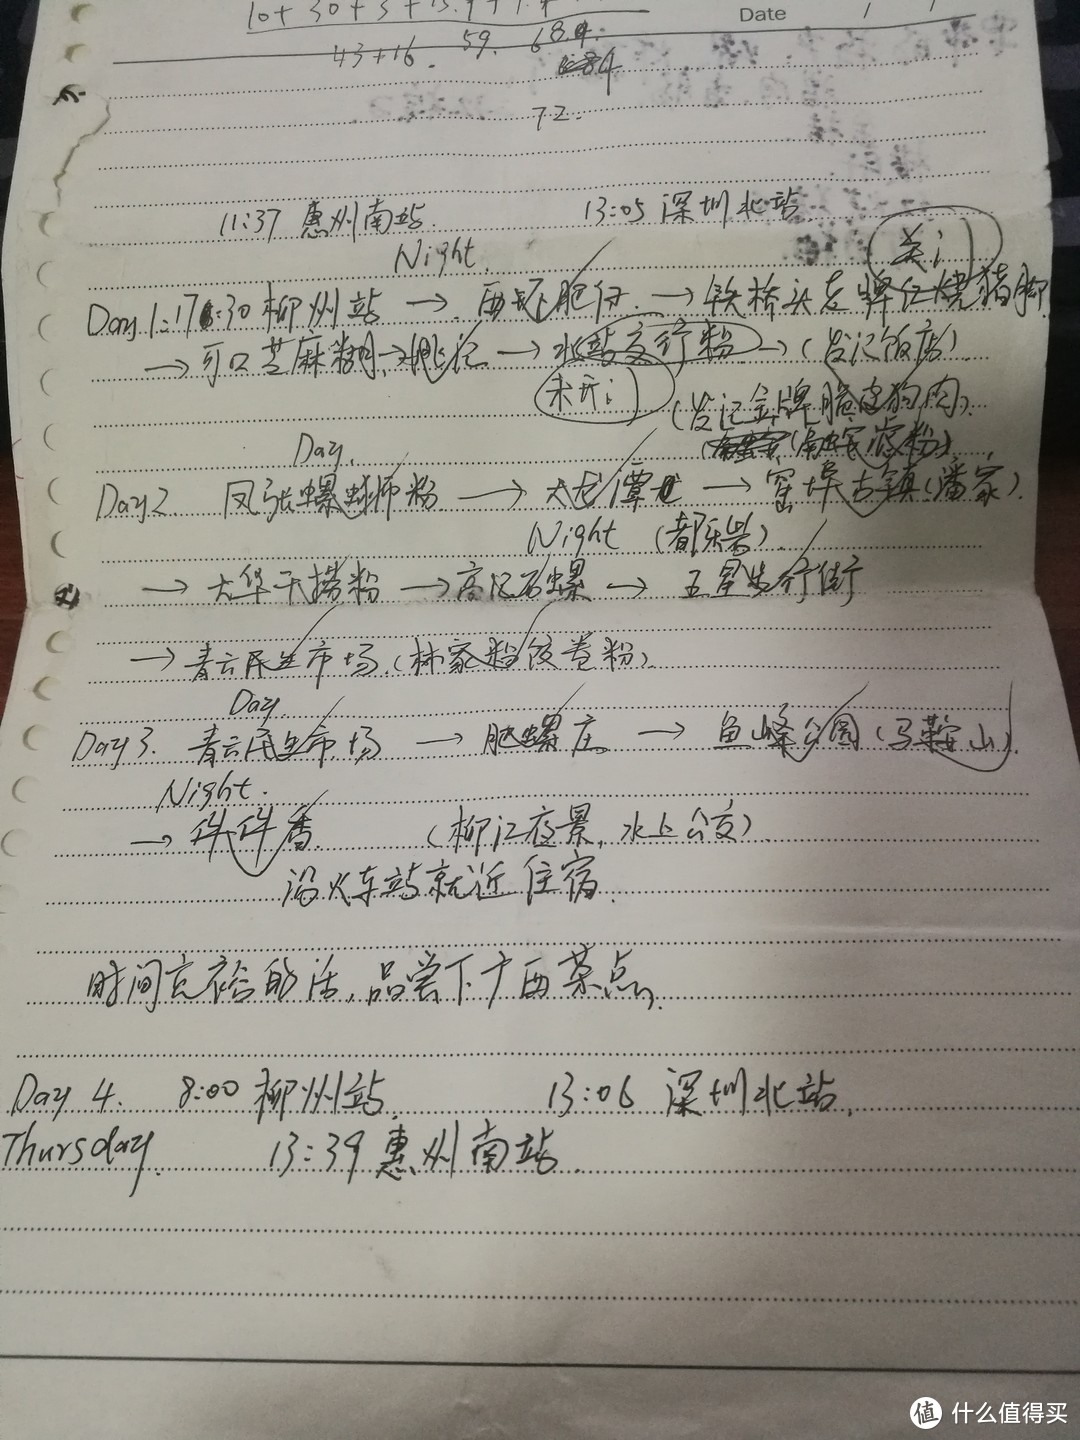 10+30+3+15.9+
Date / /
43+16. 59. 68.9.
72.
11:37 惠州南站 13:05 深圳北站
Night. 关;
Day 1:17:30 柳州站 → 肥仔 → 铁桥头老牌红烧猪脚
→ 可口芝麻糊 → → 水站 粉 → (发记饭店)
未开; (发记金牌脆皮狗肉)
Day. (螺蛳粉)
Day 2. 凤张螺蛳粉 → 大龙潭 → 窑埠古镇(潘家)
Night (都乐岩)
→ 大华干捞粉 → 高记石螺 → 五星步行街
→ 青云民生市场(林家粉饺卷粉)
Day.
Day 3. 青云民生市场 → 肥螺庄 → 鱼峰公园(马鞍山)
Night.
→ 件件香 (柳江夜景,水上公交)
沿火车站就近住宿.
时间充裕的话,品尝下广西菜点.
Day 4. 8:00 柳州站. 13:06 深圳北站,
Thursday. 13:39 惠州南站.
值 什么值得买